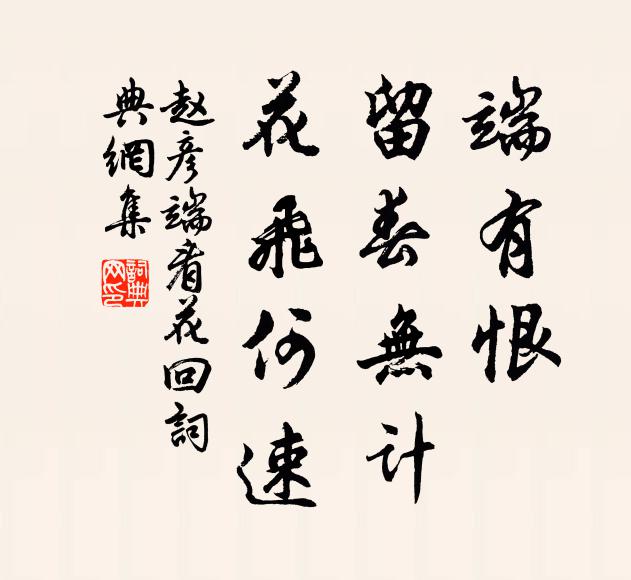 端有恨
留春無计
花飛何速
赵彦端看花回詞
典網集
詞典网印